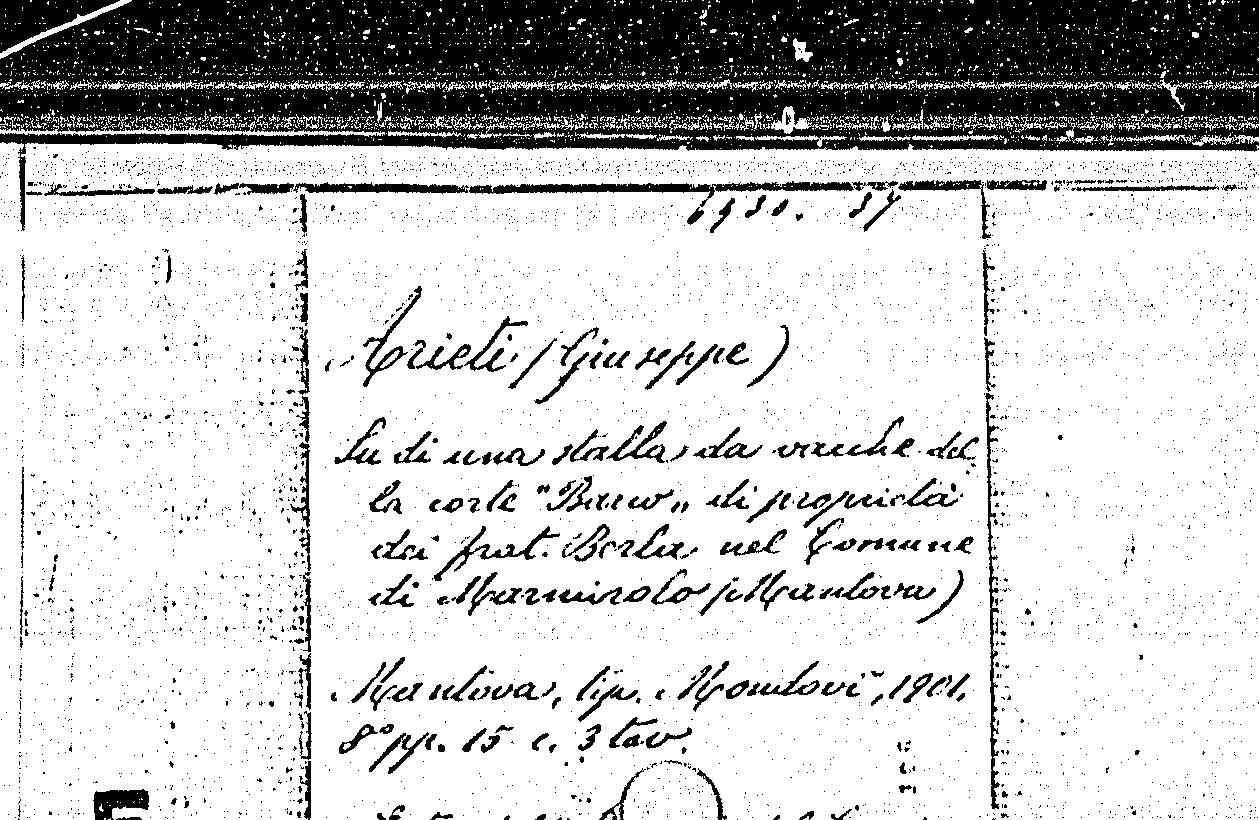 6930. 37
Arieti (Giuseppe)
Su di una stalla da vacche del
la corte "Barco" di proprietà
dei frat. Berla nel Comune
di Marmirolo (Mantova)
Mantova, tip. Mondovi, 1901.
8° pp. 15 c. 3 tav.